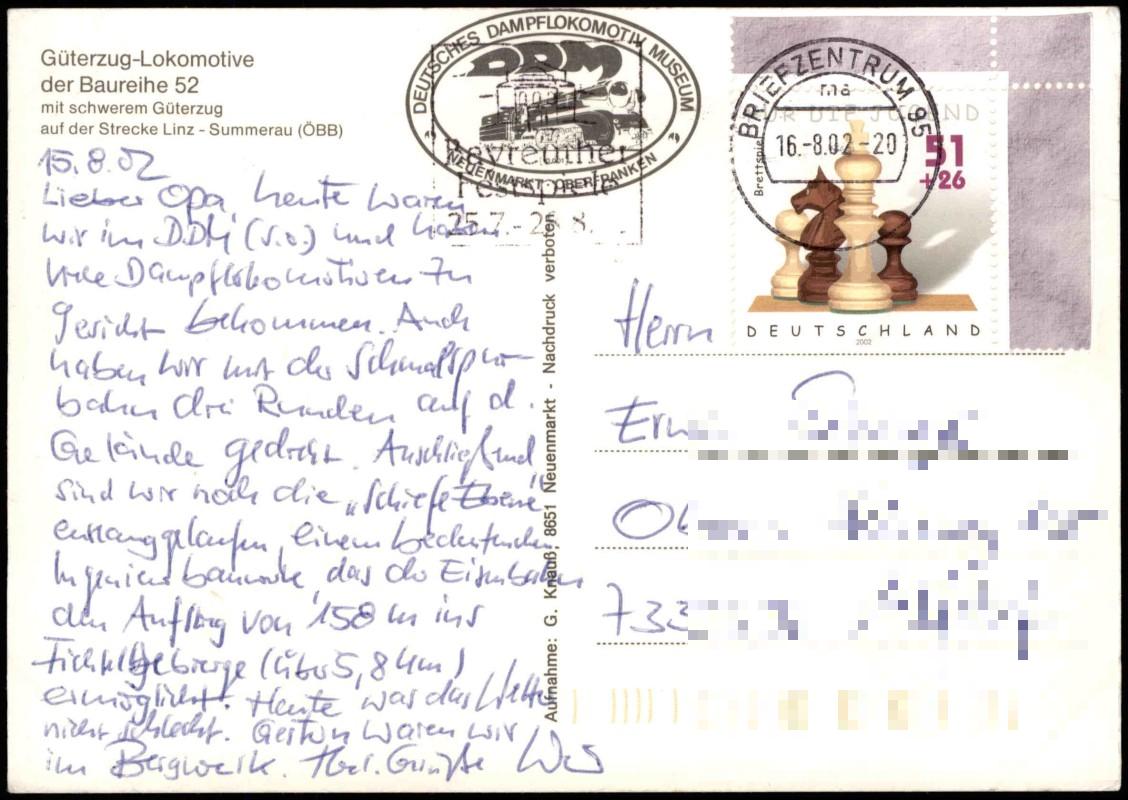 Güterzug-Lokomotive
der Baureihe 52
mit schwerem Güterzug
auf der Strecke Linz - Summerau (ÖBB)
15.8.02
Lieber Opa, heute waren
wir im DDM (s.o.) und haben
viele Dampflokomotiven zu
Gesicht bekommen. Auch
haben wir mit der Schmalspur-
bahn drei Runden auf d.
Gelände gedreht. Anschließend
sind wir noch die „Schiefe Ebene"
entlanggelaufen, einem bedeutenden
Ingenieurbauwerk, das der Eisenbahn
den Aufstieg von 158 m ins
Fichtelgebierge (über 5,8 km)
ermöglicht. Heute war das Wetter
nicht schlecht. Gestern waren wir
im Bergwerk. Grüße
DEUTSCHES DAMPFLOKOMOTIV MUSEUM
DDM
NEUENMARKT OBERFRANKEN
Bayreuther
Festspiele
25.7. - 28.8.
BRIEFZENTRUM 95
ma
16.-8.02-20
FÜR DIE JUGEND
51
+26
Brettspiele
DEUTSCHLAND
2002
Aufnahme: G. Knauß, 8651 Neuenmarkt - Nachdruck verboten
Herrn
733